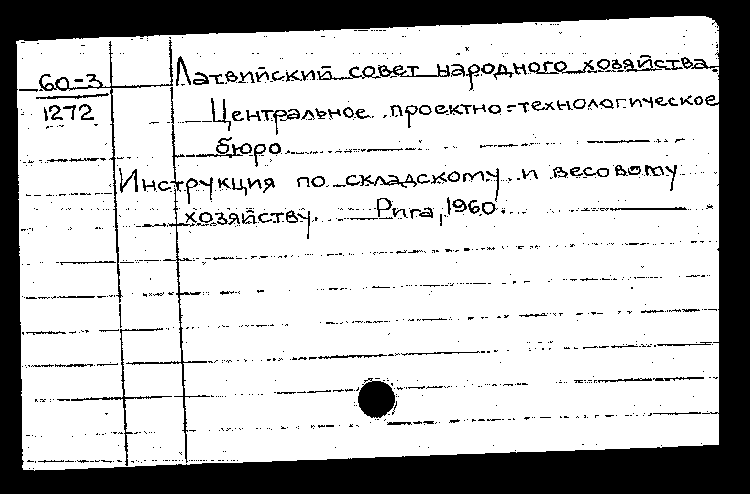 60-3
1272
Латвийский совет народного хозяйства.
Центральное проектно-технологическое
бюро.
Инструкция по складскому и весовому
хозяйству. Рига, 1960.